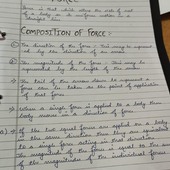 FORCE
Force is that which alters the state of rest
of a body or its uniform motion in
straight line
COMPOSITION OF FORCE :-
The direction of the force :- This may be represent
ed by the direction of an arrow.
The magnitude of the force :- This may be
represented by the length of the
The tail of the arrow used to represent a
force can be taken as the point of application
of that force
When a single force is applied to a body then
body moves in a direction of force.
If the two equal forces are applied on a body
in the same direction then they are equivalent
to a single force acting in that direction.
The magnitude of the force is equal to the sum
of the magnitudes of the individual forces